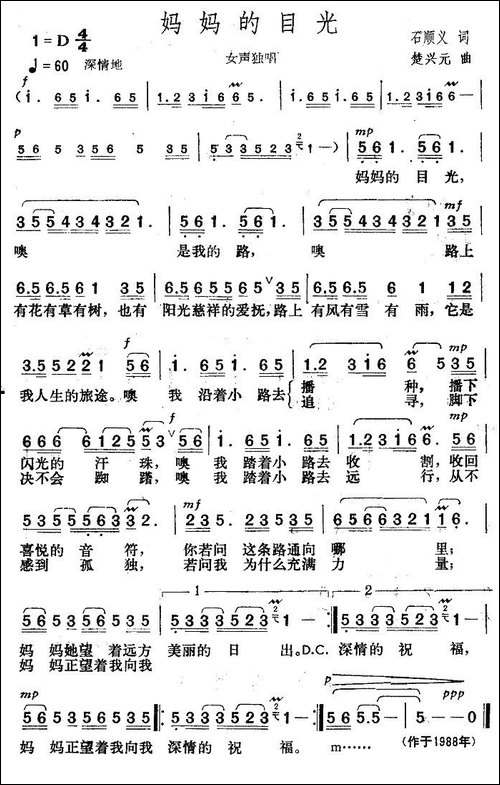 妈妈的目光
1=D 4/4
石顺义 词
♩=60 深情地
女声独唱
楚兴元 曲
f
(i. 6 5 i. 6 5 | 1.2 3 i 6 6 5. | i. 6 5 i. 6 5 | 1.2 3 i 6 6 — |
p
5 6 5 3 5 6 5 6 5 | 5 3 5 3 5 2 3 1 —) |
mp
5 6 1. 5 6 1. |
妈妈的 目 光,
3 5 5 4 3 4 3 2 1. | 5 6 1. 5 6 1. | 3 5 5 4 3 4 3 2 1 3 5 |
mf
噢 是我的 路, 噢 路上
6.5 6.5 6 1 3 5 | 6.5 6 5 5 6 5 3 5 | 6.5 6.5 6 1 1 2 |
有花有草有树,也有 阳光慈祥的爱抚,路上 有风有雪 有 雨,它是
f mp
3.5 5 2 2 1 5 6 | 1. 6 5 1. 6 5 | 1.2 3 i 6 6 5 3 5 |
我人生的旅途。噢 我 沿着小 路去 播 种,播下
追 寻,脚下
f mp
6 6 6 6 1 2 5 5 3 5 6 | 1. 6 5 1. 6 5 | 1.2 3 1 6 6. 5 6 |
闪光的 汗 珠,噢 我 踏着小 路去 收 割,收回
决不会 踟 躇,噢 我 踏着小 路去 远 行,从不
mf
5 3 5 5 5 6 3 3 2. | 2 3 5. 2 3 5 3 5 | 6 5 6 6 3 2 1 1 6. |
喜悦的 音 符, 你若问 这条路通向 哪 里;
感到 孤 独, 若问我 为什么充满 力 量;
1 2
5 6 5 3 5 6 5 3 5 | 5 3 3 3 5 2 3 1 — :| 5 3 3 3 5 2 3 |
妈 妈她望 着远方 美丽的 日 出。D.C. 深情的 祝 福,
妈 妈正望着我向我
mp p ppp
5 6 5 3 5 6 5 3 5 | 5 3 3 3 5 2 3 1 — :| 5 6 5. 5 — | 5 — 0 ‖
妈 妈正望着我向我 深情的 祝 福。 m……
(作于1988年)